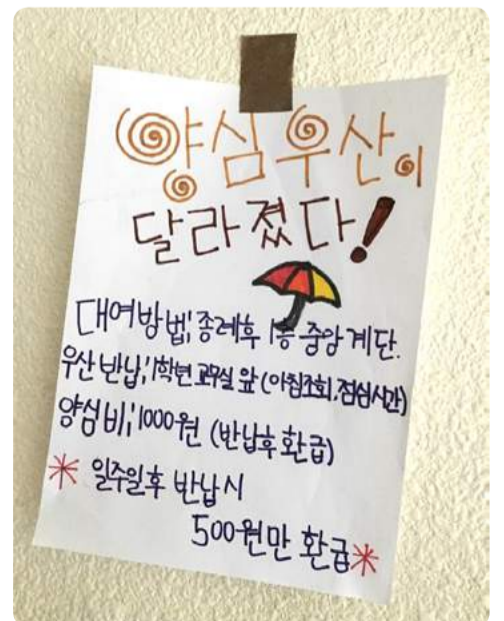 양심우산이
달라졌다!
대여방법; 종례후 1층 중앙 계단.
우산 반납; 1학년 교무실 앞 (아침조회, 점심시간)
양심비; 1000원 (반납후 환급)
* 일주일후 반납시
500원만 환급*